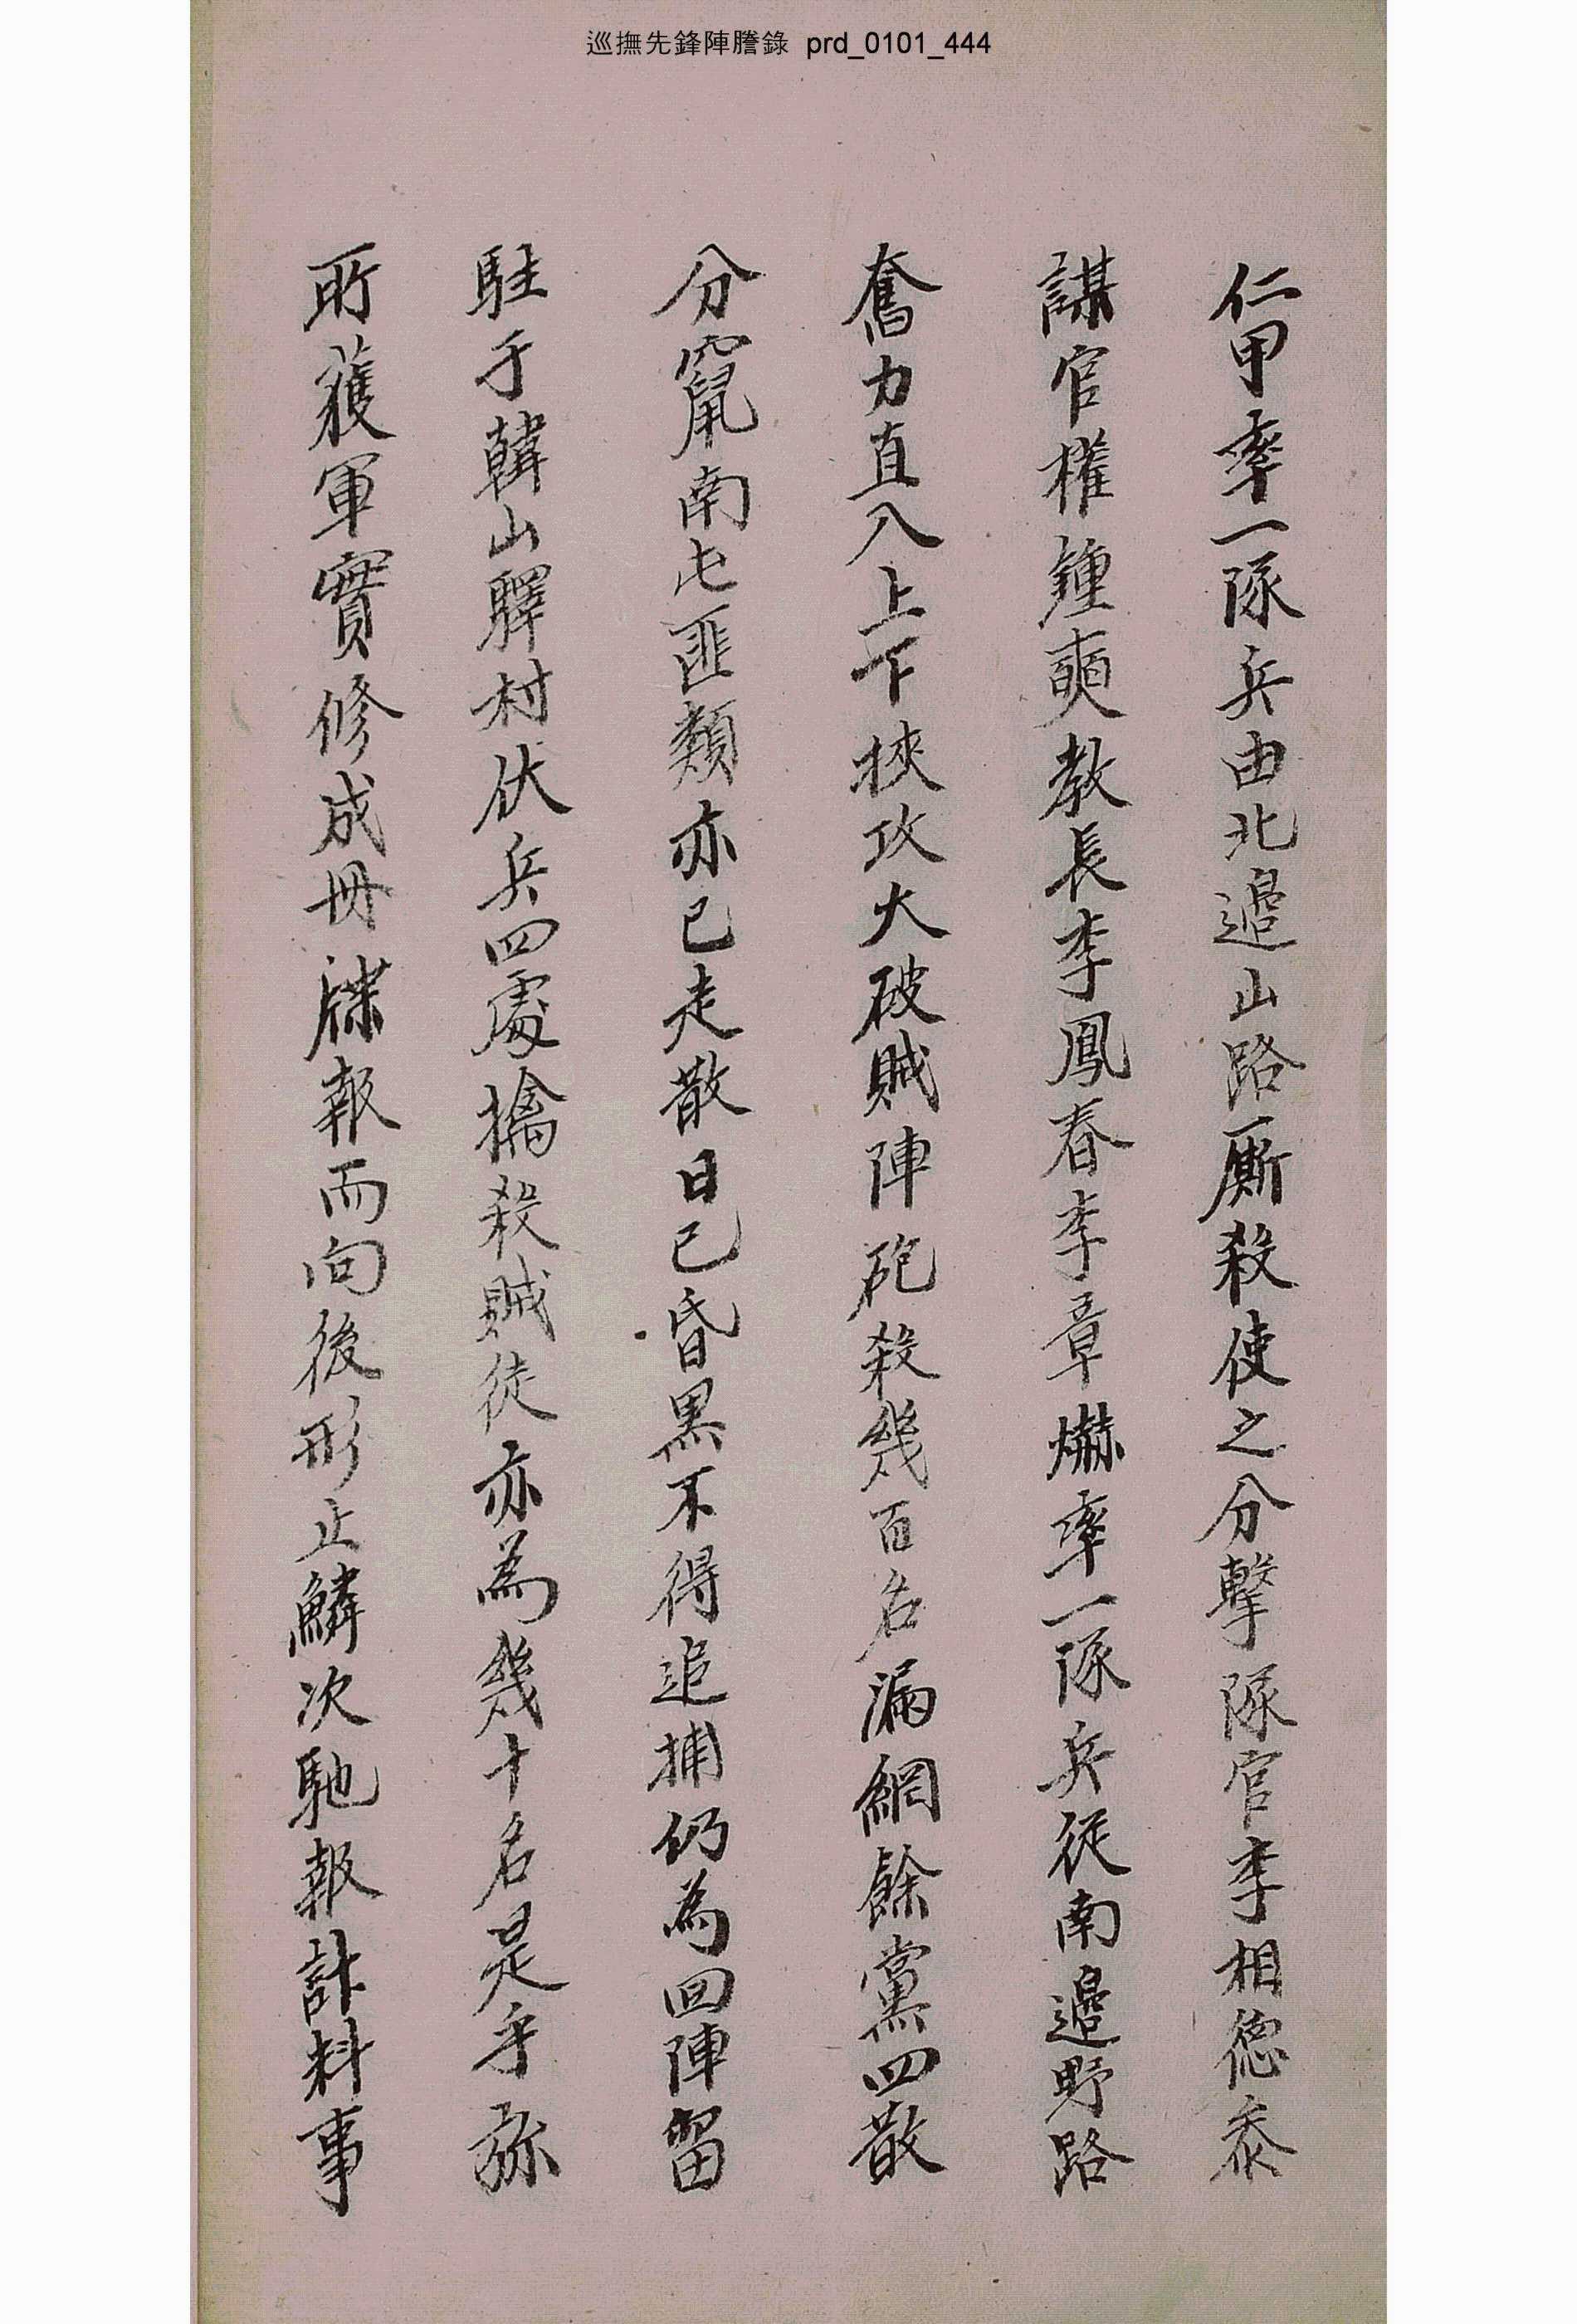 巡撫先鋒陣謄錄 prd_0101_444
仁甲率一隊兵由北邊山路厮殺使之分擊隊官李相德叅
謀官權鍾奭教長李鳳春李章爀率一隊兵從南邊野路
奮力直入上下挾攻大破賊陣砲殺幾百名漏網餘黨四散
分竄南屯匪類亦已走散日已昏黑不得追捕仍為回陣留
駐于韓山驛村伏兵四處擒殺賊徒亦為幾十名是乎㫆
所獲軍實修成冊牒報而向後形止鱗次馳報計料事